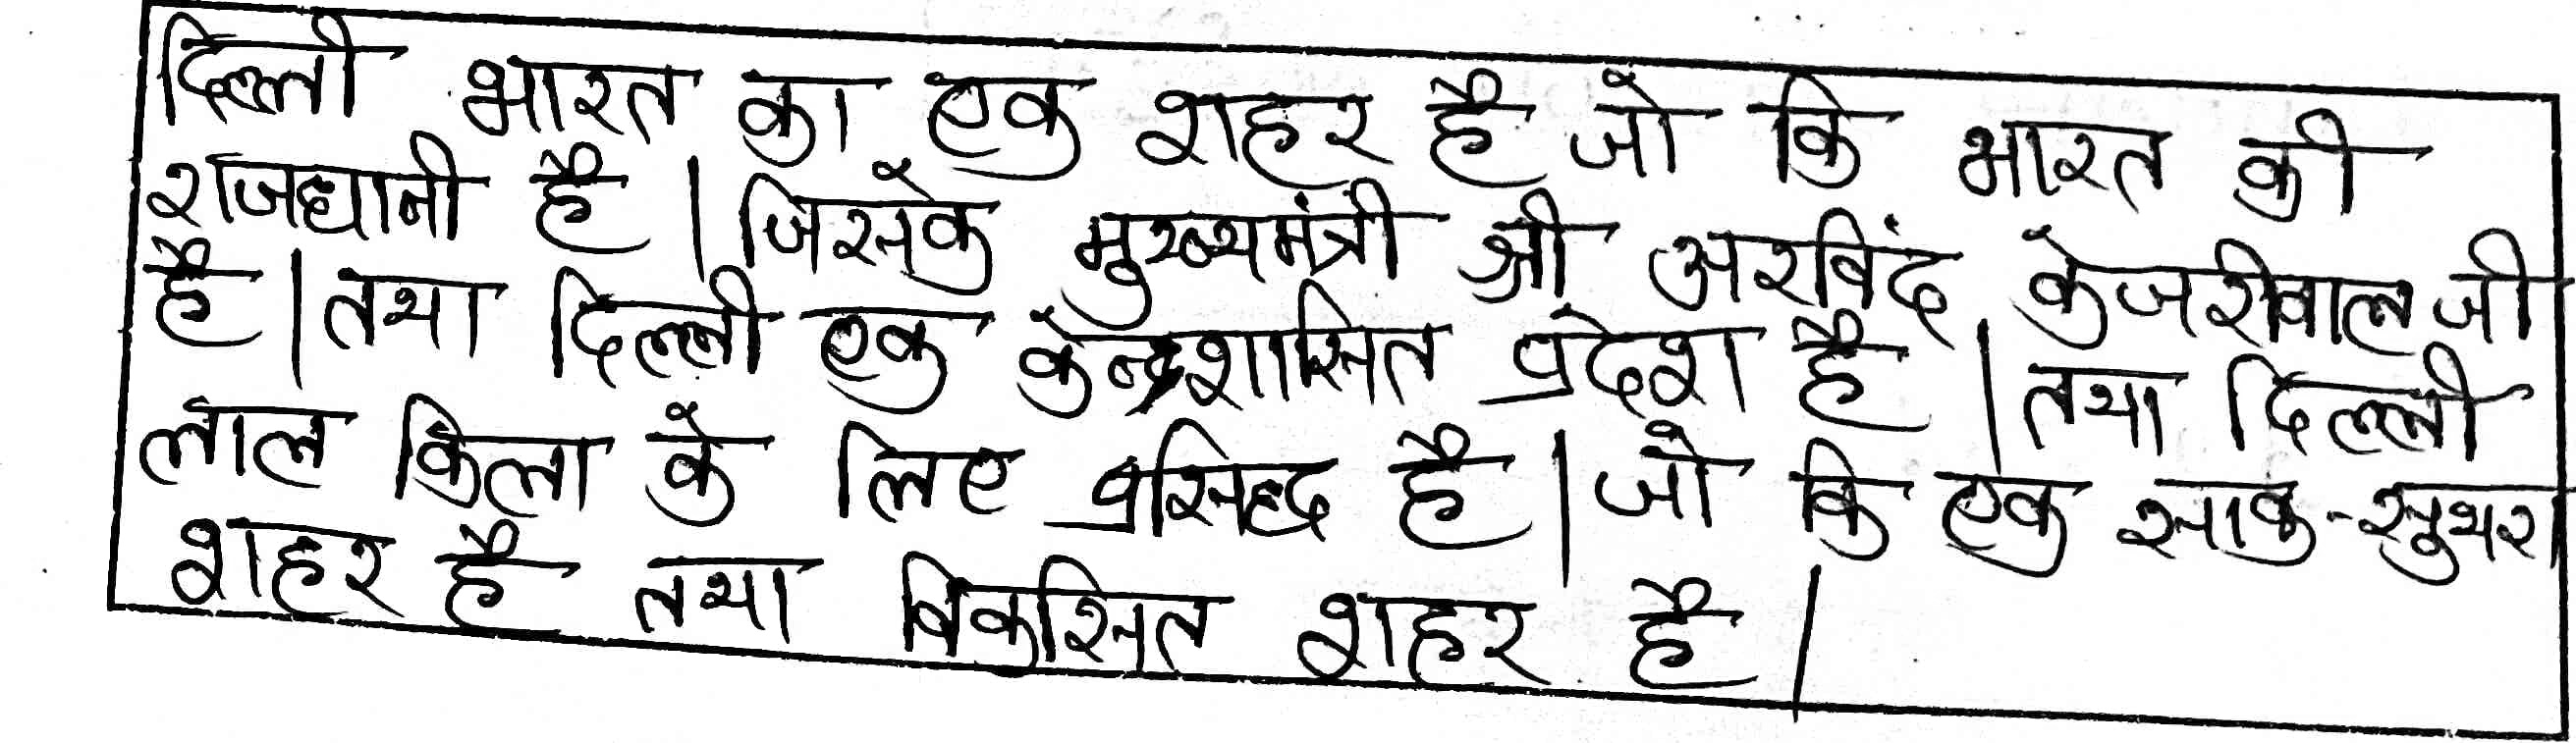 दिल्ली भारत का एक शहर है जो कि भारत की
राजधानी है | जिसके मुख्यमंत्री श्री अरविंद केजरीवाल जी
है | तथा दिल्ली एक केन्द्रशासित प्रदेश है | तथा दिल्ली
लाल किला के लिए प्रसिद्ध है | जो कि एक साक-सुथरा
शहर है तथा विकसित शहर है |